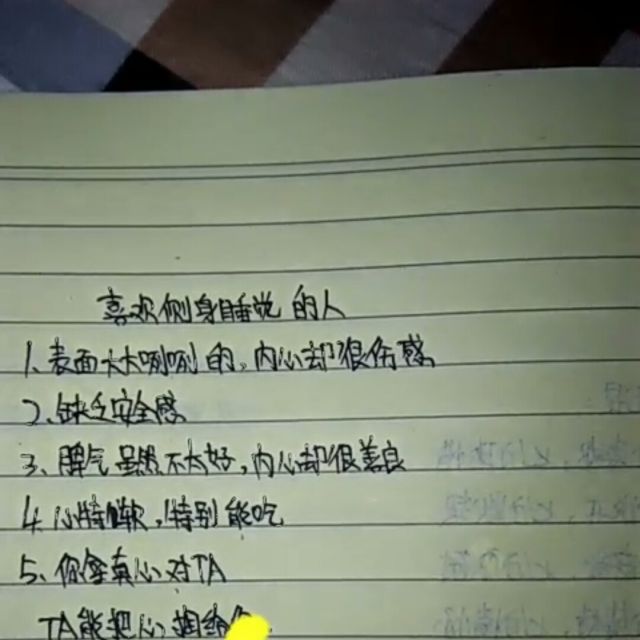 喜欢侧身睡觉的人
1、表面大大咧咧的,内心却很伤感
2、缺乏安全感
3、脾气虽然不太好,内心却很善良
4、心特别软,特别能吃
5、你拿真心对TA
TA能把心掏给